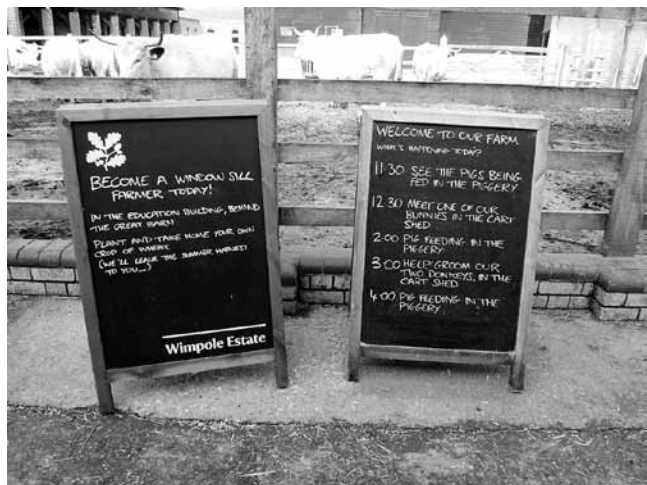 BECOME A WINDOW SILL
FARMER TODAY!
IN THE EDUCATION BUILDING, BEHIND
THE GREAT BARN
PLANT AND TAKE HOME YOUR OWN
CROP OF WHEAT
(WE'LL LEAVE THE SUMMER HARVEST
TO YOU...)
Wimpole Estate
WELCOME TO OUR FARM
WHAT'S HAPPENING TODAY?
11:30 SEE THE PIGS BEING
FED IN THE PIGGERY
12 30 MEET ONE OF OUR
BUNNIES IN THE CART
SHED
2:00 PIG FEEDING IN THE
PIGGERY
3:00 HELP GROOM OUR
TWO DONKEYS, IN THE
CART SHED
4:00 PIG FEEDING IN THE
PIGGERY